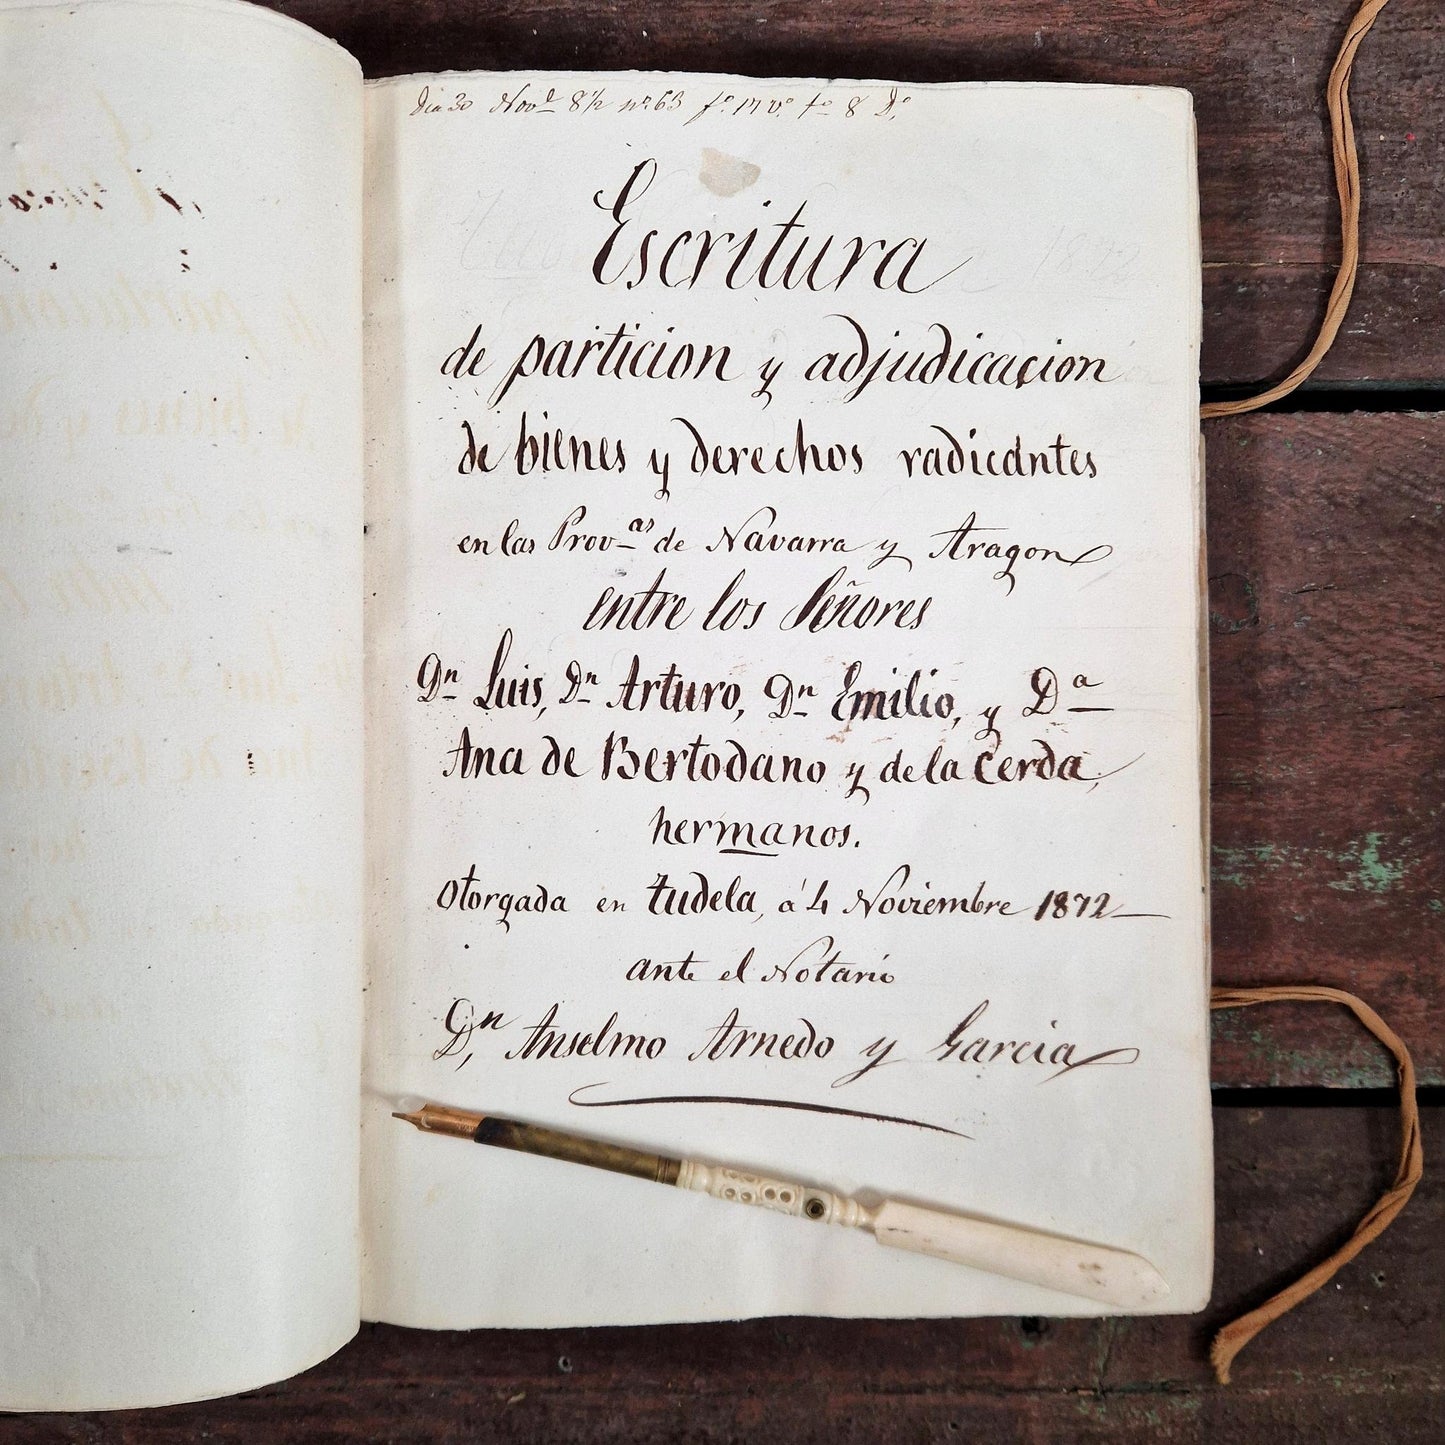 Dia 30 Nov.e 872 nº 63 fº 17 vº tº 8 Dº
Escritura
de particion y adjudicacion
de bienes y derechos radicantes
en las Prov.as de Navarra y Aragon
entre los Señores
Dn Luis, Dn Arturo, Dn Emilio, y Da
Ana de Bertodano y de la Cerda,
hermanos.
Otorgada en Tudela, á 4 Noviembre 1872
ante el Notario
Dn, Anselmo Arnedo y Garcia